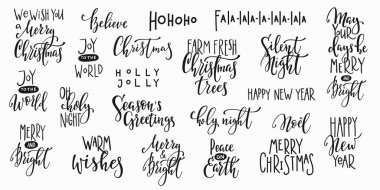 We wish you
a Merry
Christmas
Believe
HoHoHo
FA-la-la-la-la-la-la
May
your
days be
MERRY
and
BRigHT
JOY
TO THE
WORLD
Christmas
FARM FRESH
Christmas
TREES
Silent
Night
Joy
to the
World
Oh holy
NIGHT
HOLLY
JOLLY
Season's
Greetings
HAPPY NEW YEAR
MERRY
and
Bright
WARM
wishes
Merry
&
Bright
o holy night
Peace
on
Earth
Noël
MERRY
CHRISTMAS
HAPPY
New
YEAR